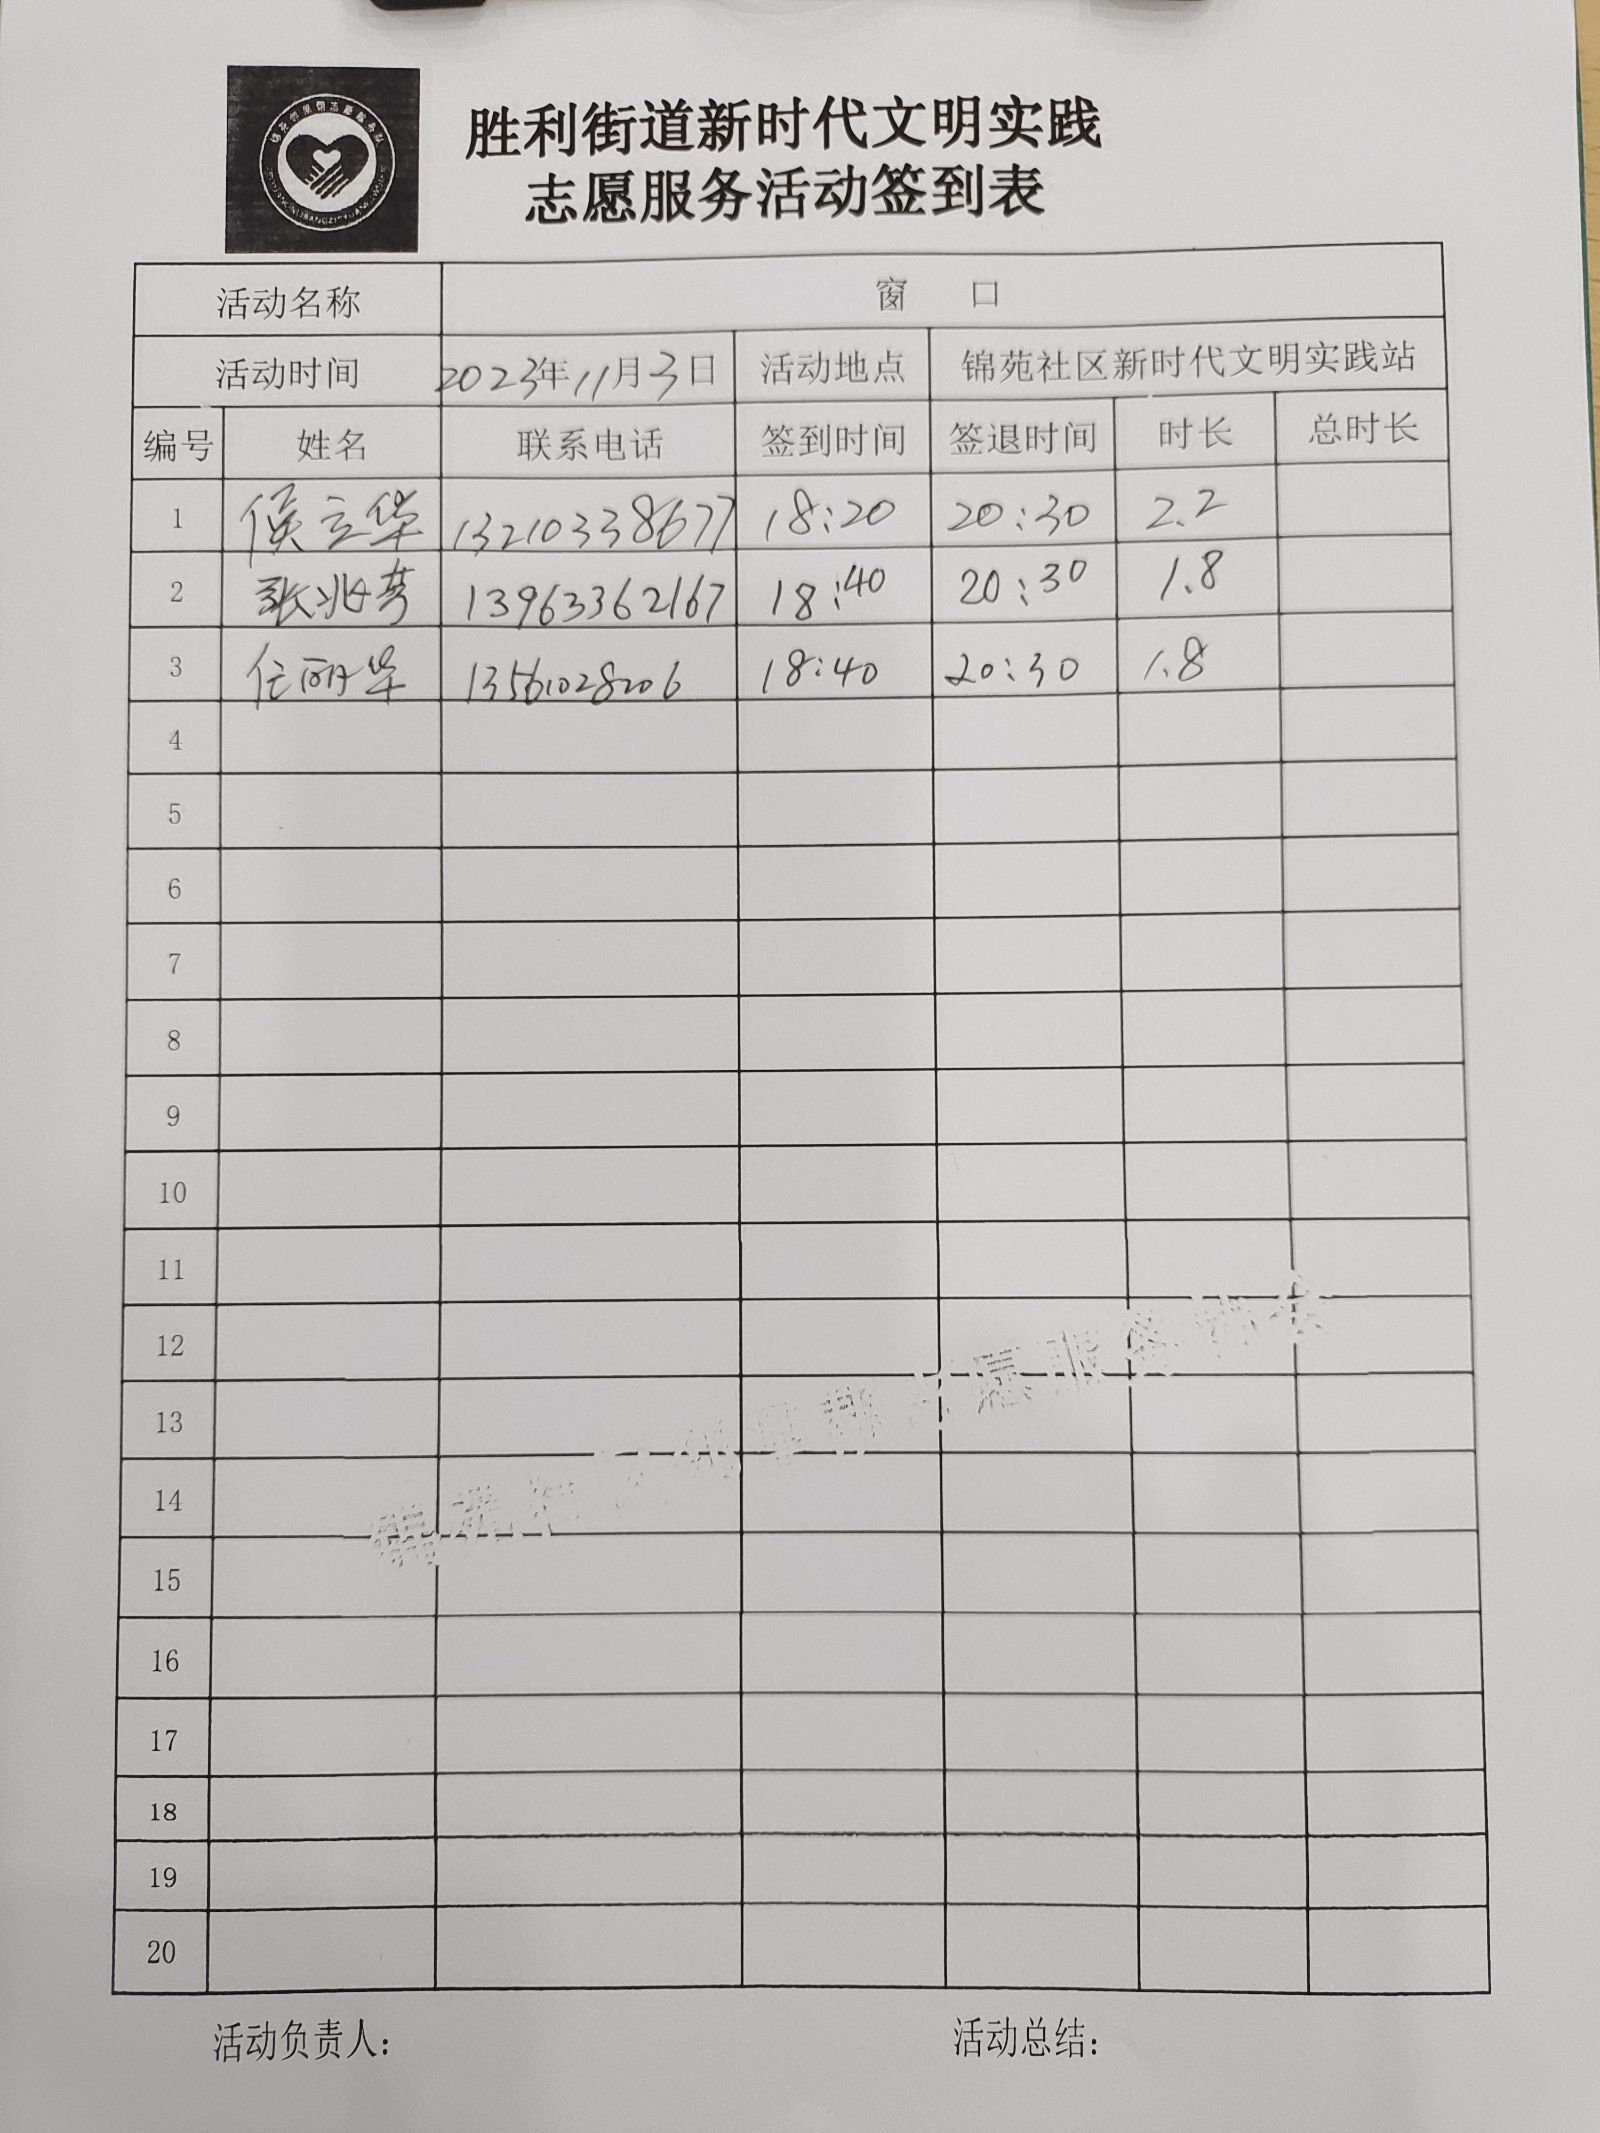 胜利街道新时代文明实践
志愿服务活动签到表
活动名称 窗 口
活动时间 2023年11月3日 活动地点 锦苑社区新时代文明实践站
编号 姓名 联系电话 签到时间 签退时间 时长 总时长
1 侯立华 13210338677 18:20 20:30 2.2
2 张兆 13963362167 18:40 20:30 1.8
3 任丽华 13561028206 18:40 20:30 1.8
4
5
6
7
8
9
10
11
12
13
14
15
16
17
18
19
20
活动负责人: 活动总结: